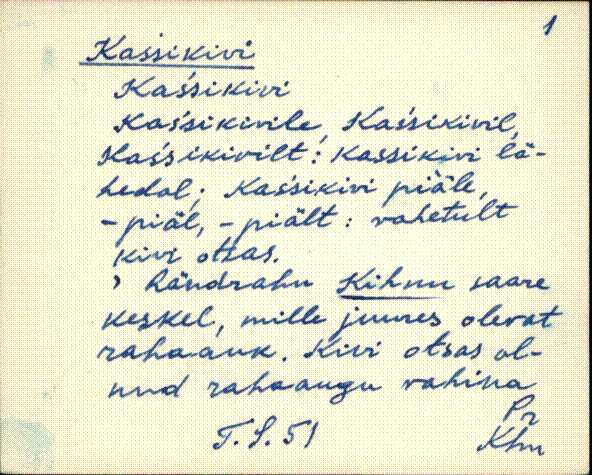 1
Kaśsikivi
Kaśsikivi
Kaśsikivile, Kaśsikivil,
Kaśsikivilt: Kassikivi lä-
hedal; Kaśsikivi piäle,
-piäl, -piält: vahetult
kivi otsas.
, händrahn Kihnu saare
keskel, mille juures olevat
raha-auk. Kivi otsas ol-
nud rahaaugu vahina
Pr
T.S. 51 Khn